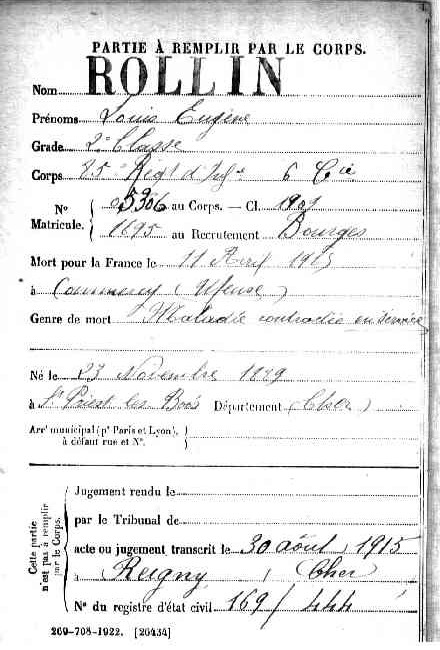 PARTIE À REMPLIR PAR LE CORPS.
Nom ROLLIN
Prénoms Louis Eugène
Grade 2e Classe
Corps 85e Régt d'Infie 6 Cie
N° Matricule. { 5906 au Corps. — Cl. 1909
1695 au Recrutement Bourges
Mort pour la France le 11 Avril 1915
à Commercy (Meuse)
Genre de mort Maladie contractée en service
Né le 23 Novembre
à St Priest les Bois Département (Cher)
Arrt municipal (pr Paris et Lyon), à défaut rue et N°. {
Cette partie n'est pas à remplir par le Corps.
Jugement rendu le
par le Tribunal de
acte ou jugement transcrit le 30 août 1915
à Reigny (Cher
N° du registre d'état civil 169/444
269-708-1922. [26434]